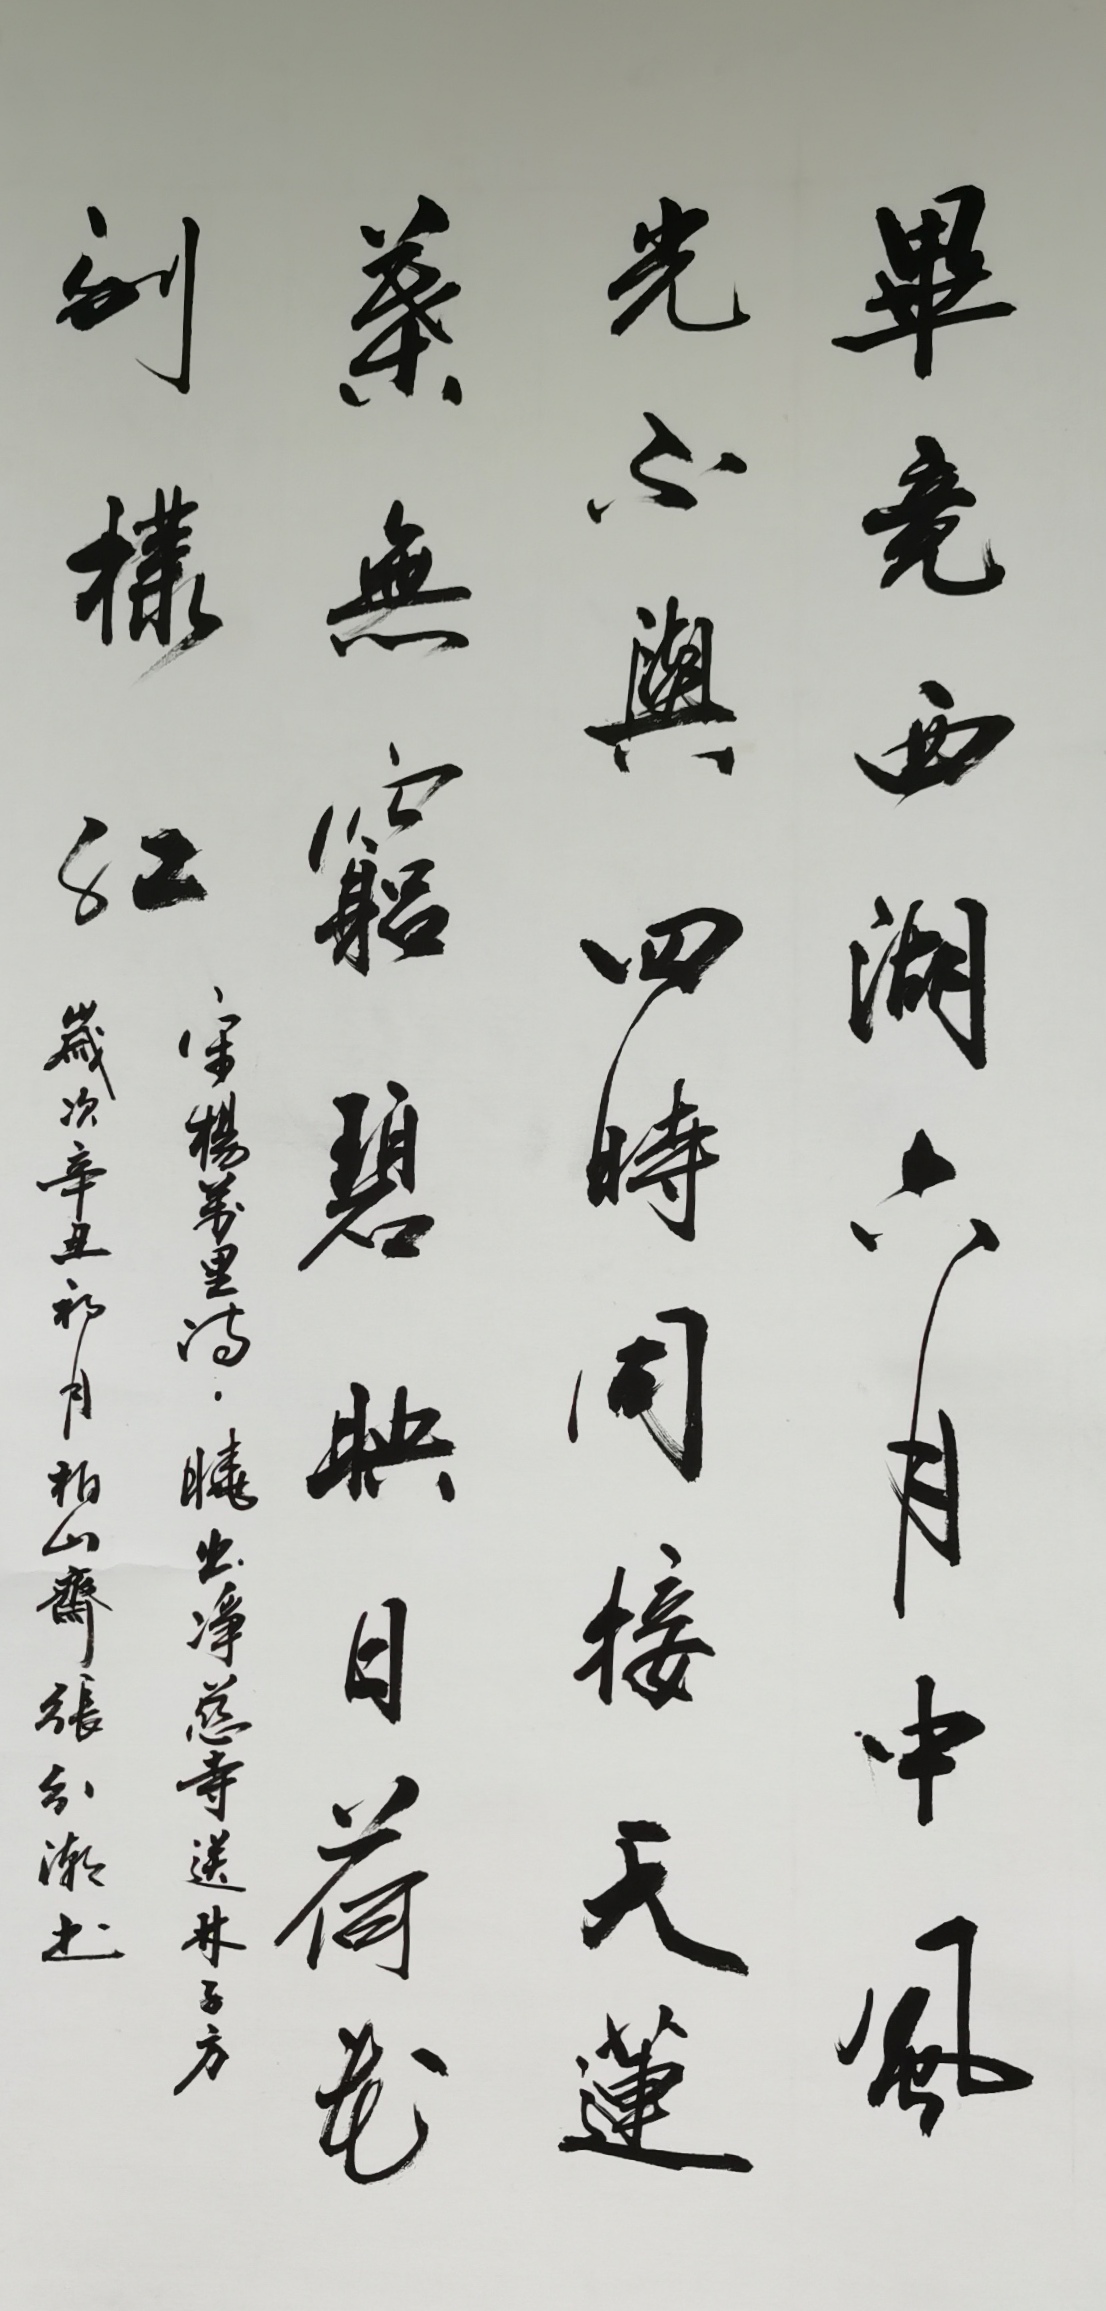 畢竟西湖六月中風
光不與四時同接天蓮
葉無窮碧映日荷花
別樣紅
宋楊萬里詩·曉出淨慈寺送林子方
歲次辛丑初月柏山齋張劍潮书